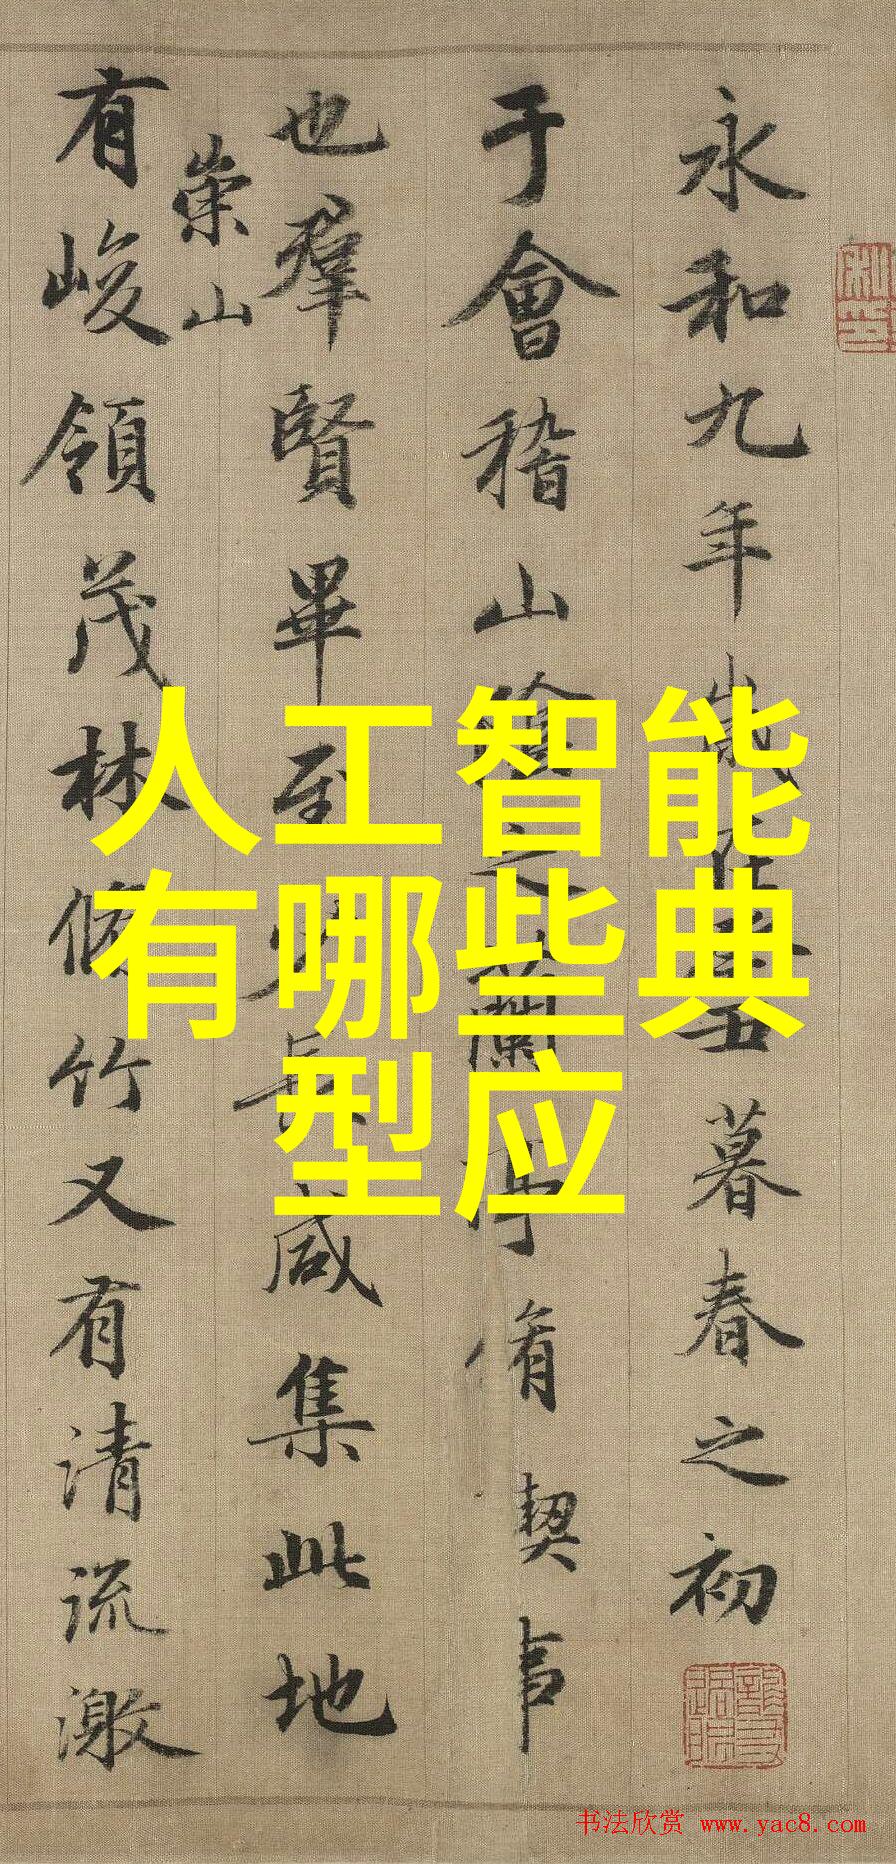 永和九年歲在癸丑暮春之初
于會稽山陰之蘭亭脩稧事
也羣賢畢至少長咸集此地
有崇山峻領茂林脩竹又有清流激
人工智能
有哪些典
型应
书法欣赏 www.yac8.com